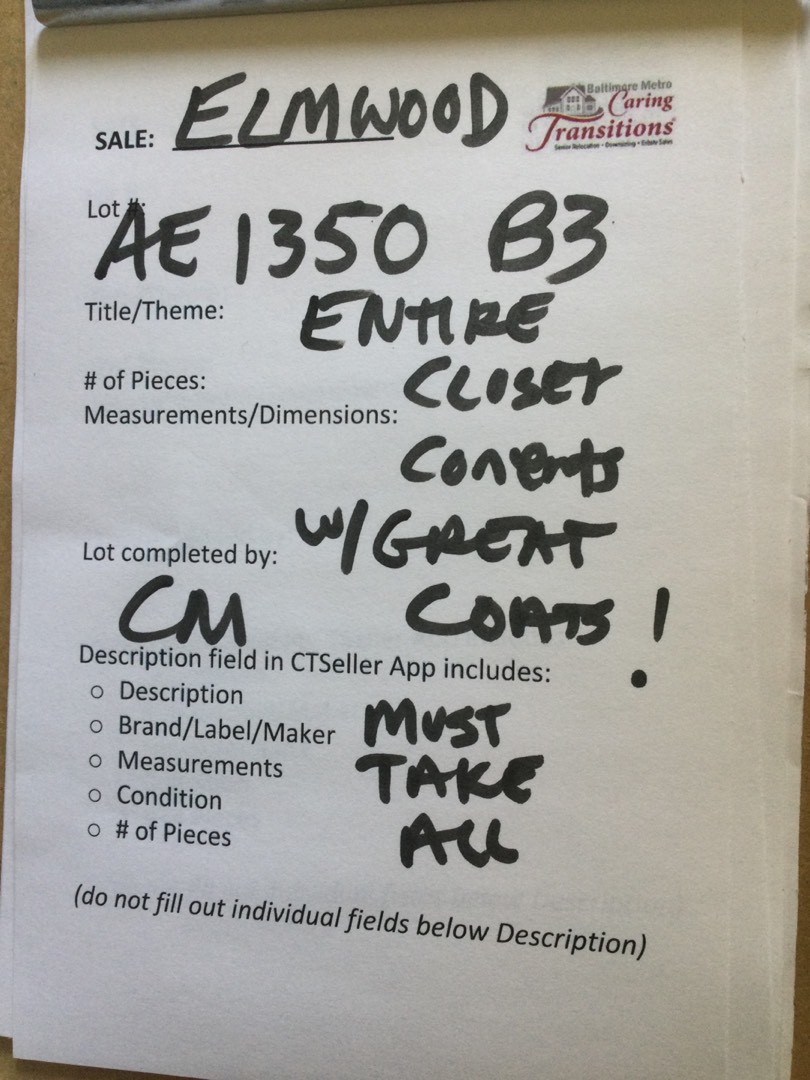 SALE: ELMWOOD
Baltimore Metro
Caring
Transitions
Senior Relocation • Downsizing • Estate Sales
Lot #:
AE 1350 B3
Title/Theme: ENTIRE
# of Pieces: CLOSET
Measurements/Dimensions:
Contents
W/GREAT
Lot completed by:
CM COATS!
Description field in CTSeller App includes:
○ Description
○ Brand/Label/Maker MUST
○ Measurements TAKE
○ Condition
○ # of Pieces ALL
(do not fill out individual fields below Description)